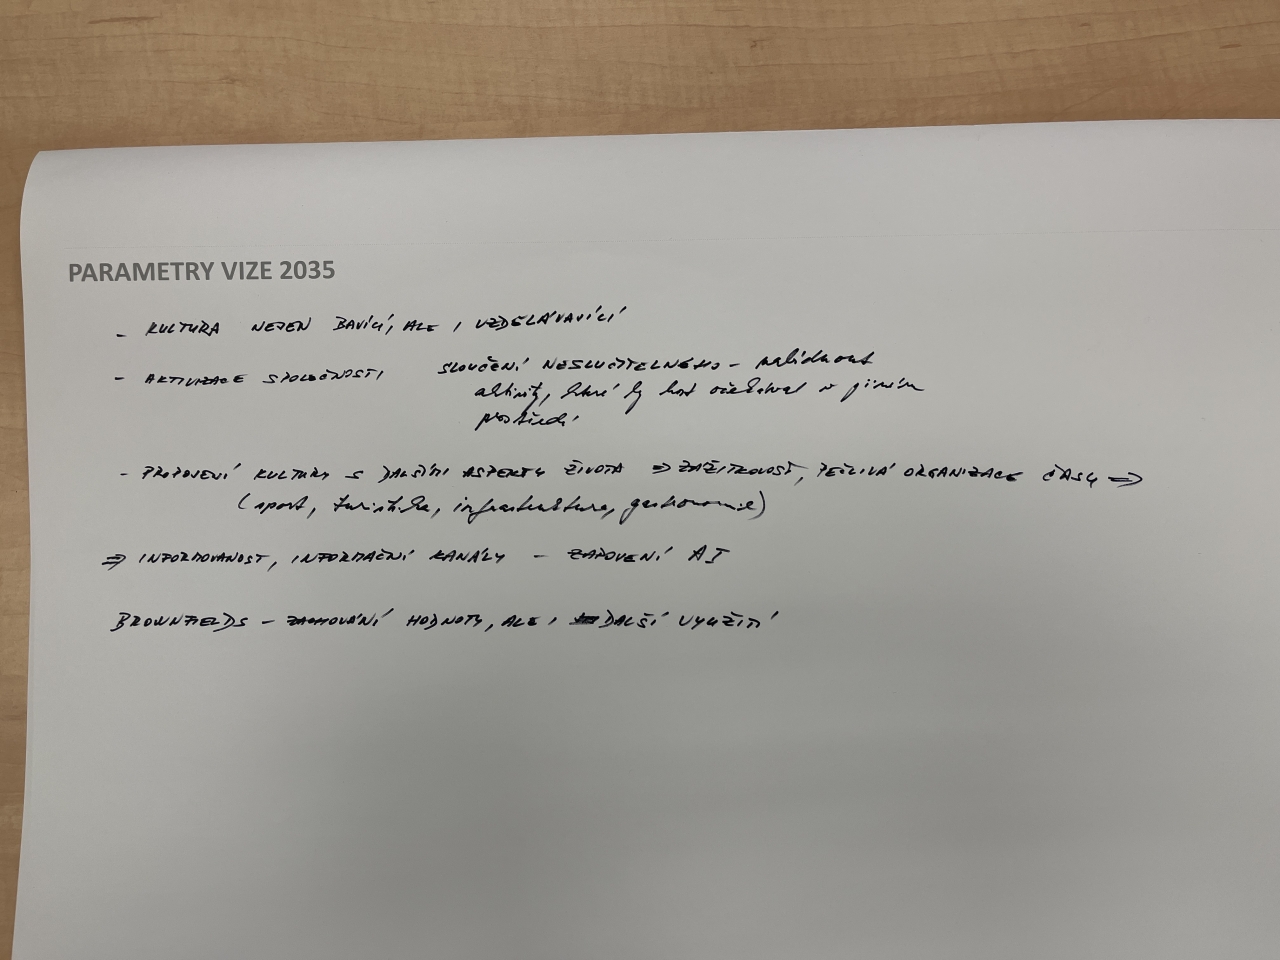 PARAMETRY VIZE 2035
- KULTURA NEJEN BAVÍCÍ, ALE I VZDĚLÁVAVÍCÍ
- AKTIVIZACE SPOLEČNOSTI SLOUČENÍ NESLUČITELNÉHO - nabídnout
aktivity, které by host očekával v jiném
prostředí
- PROPOJENÍ KULTURY S DALŠÍMI ASPEKTY ŽIVOTA ⇒ ZÁŽITKOVOST, PEČLIVÁ ORGANIZACE ČASU ⇒
(sport, turistika, infrastruktura, gastronomie)
⇒ INFORMOVANOST, INFORMAČNÍ KANÁLY - ZAPOJENÍ AI
BROWNFIELDS - ZACHOVÁNÍ HODNOTY, ALE I DALŠÍ VYUŽITÍ